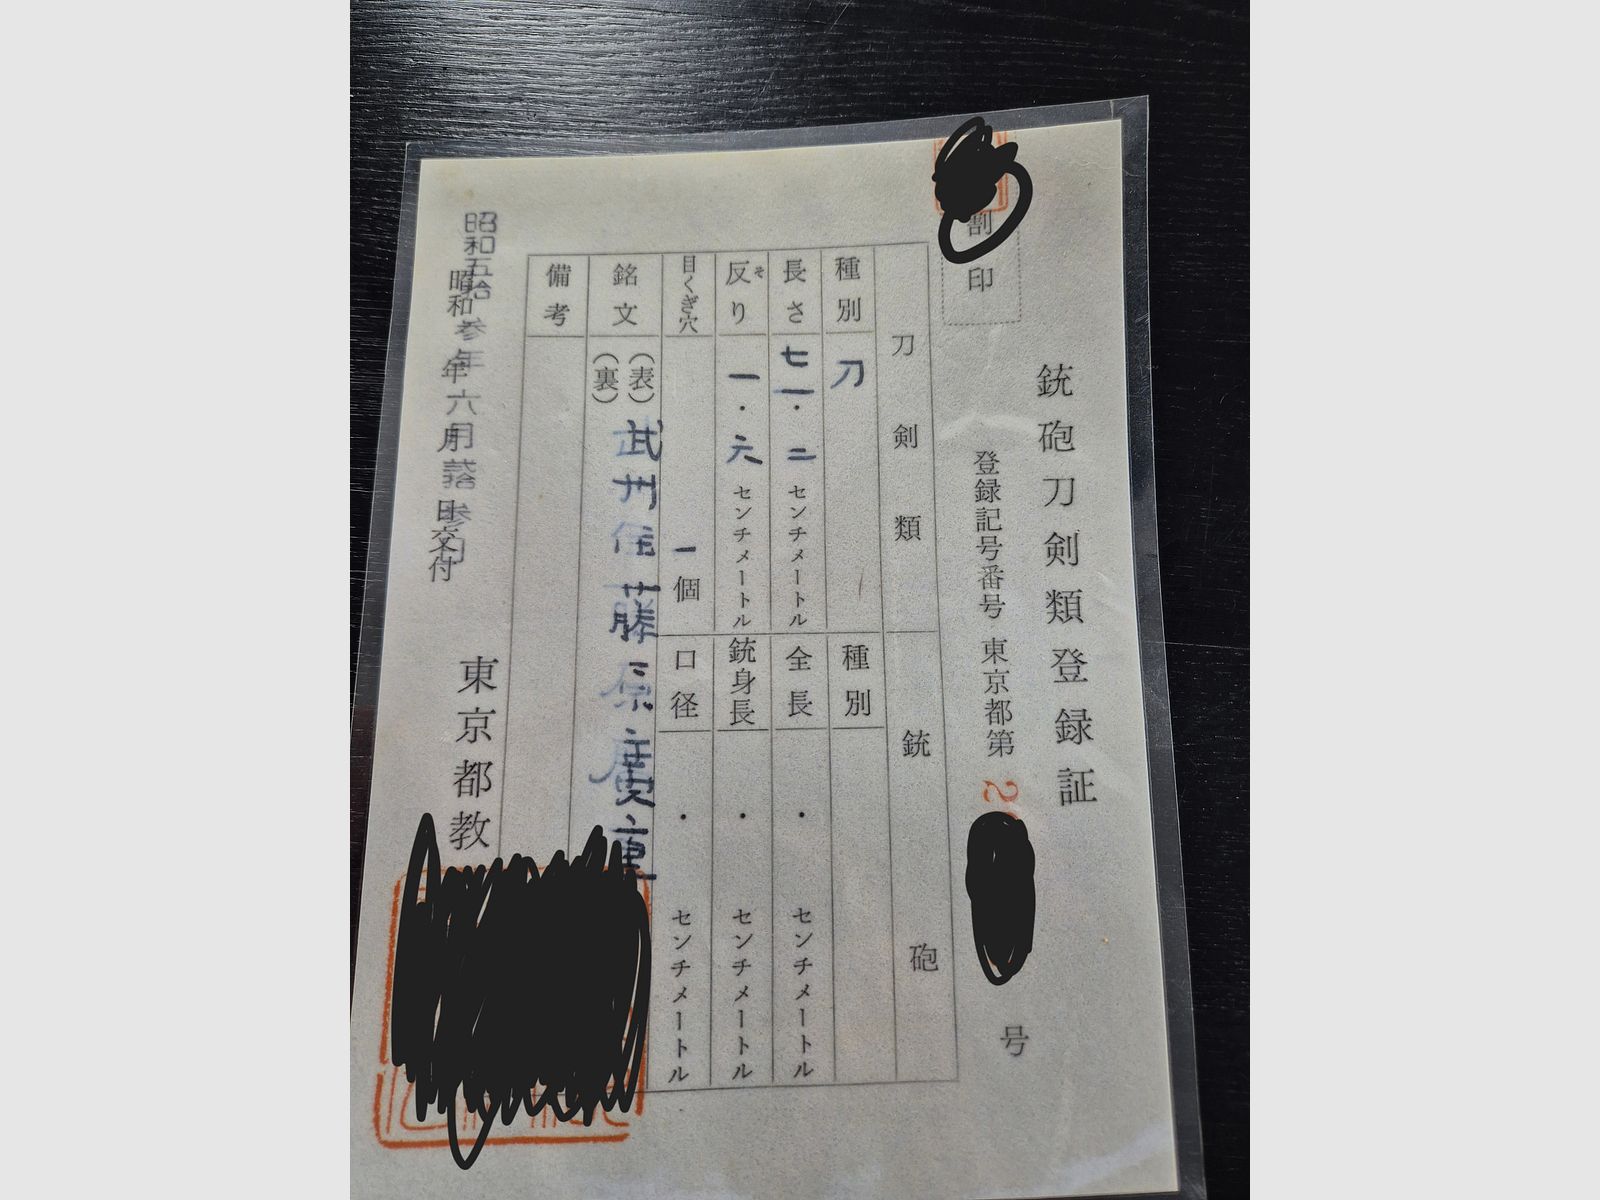 割印
銃砲刀剣類登録証
登録記号番号 東京都第 2 号
刀剣類
銃砲
種別 刀
種別
長さ 七一・二 センチメートル
全長 ・ センチメートル
反り そ 一・六 センチメートル
銃身長 ・ センチメートル
目くぎ穴 一個
口径 ・ センチメートル
銘文 (表) 武州住藤原廣重
(裏)
備考
昭和五拾参年六月弐拾参日
昭和 年 月 日交付
東京都教